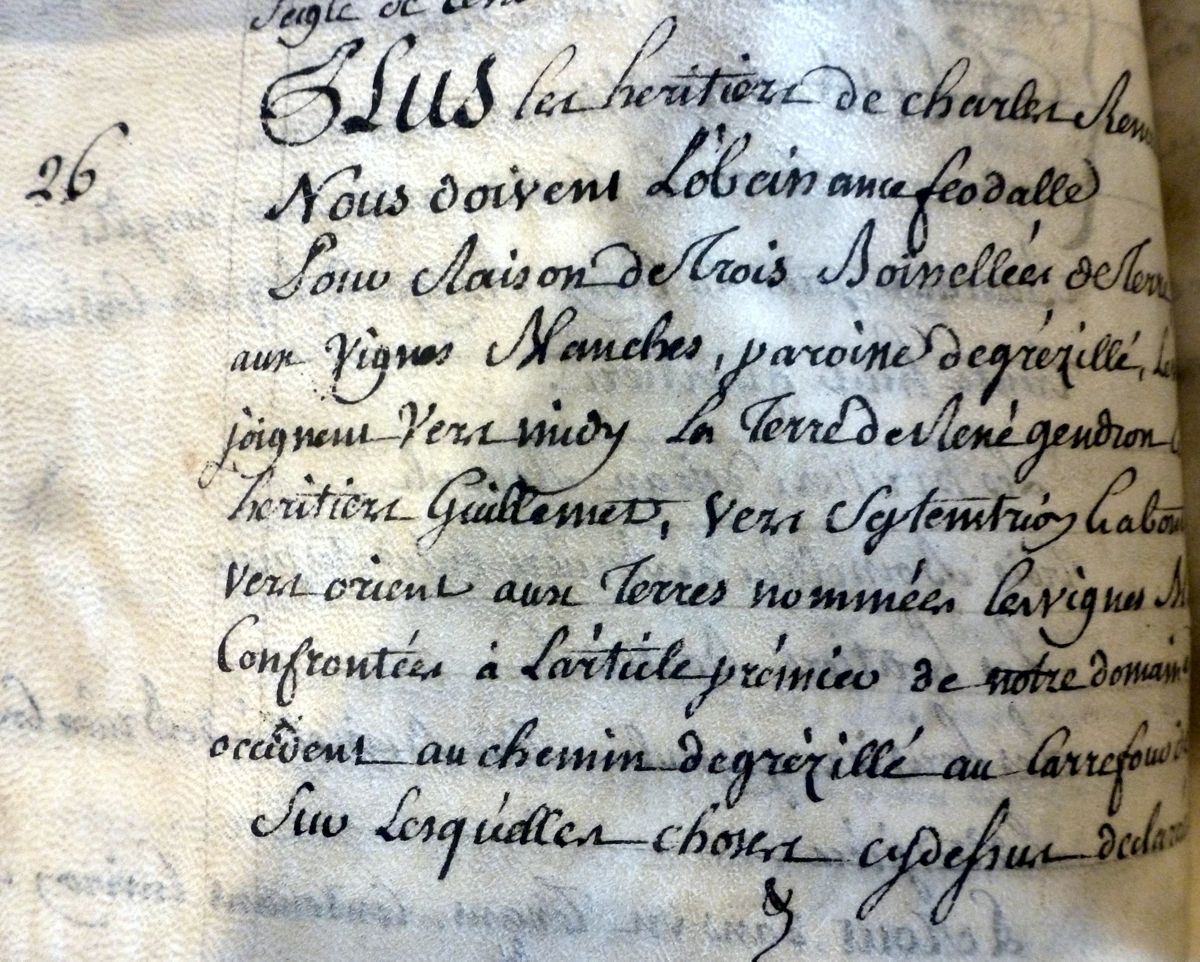 seigle de
PLUS les heritiers de charles
26
Nous doivent L'obeissance feodalle
Pour Raison de Trois Boissellées de Terre
aux Vignes Blanches, paroisse de grézillé,
joignent Vers midy La Terre de René gendron
heritiers Guillemet, Vers Septemtrion
vers orient aux Terres nommées les vignes
Confrontées à L'article prémier de notre domaine
occident au chemin de grézillé au Carrefour
Sur Lesquelles choses cy dessus